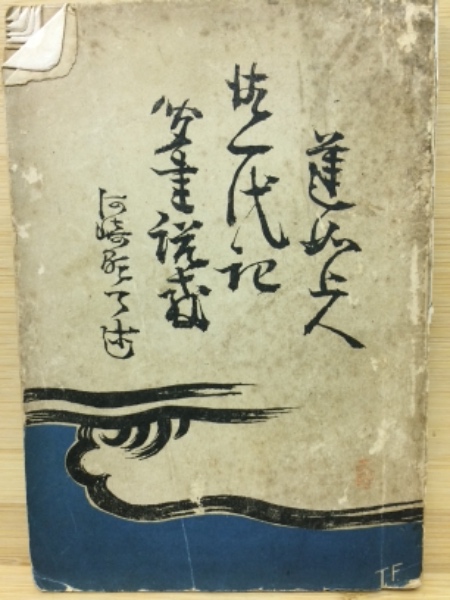 蓮如上人
御一代記
聞書説教
河崎顕了述
T F